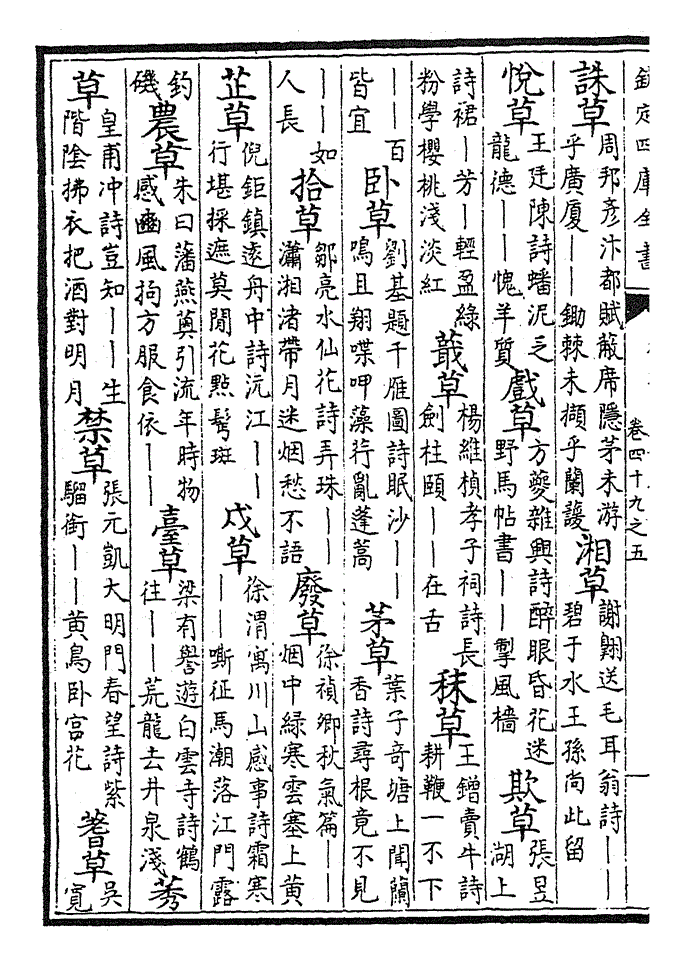 欽定四庫全書 卷四十九之五
誅草 周邦彥汴都賦蔽席隱茅未游乎廣厦——鋤棘未擷乎蘭蕿 湘草 謝翺送毛耳翁詩——碧于水王孫尚此留
悅草 王廷陳詩蟠泥乏龍德——愧羊質 戲草 方夔雜興詩醉眼昏花迷野馬帖書——掣風檣 欺草 張昱湖上
詩裙—芳—輕盈綠粉學櫻桃淺淡紅 蕺草 楊維楨孝子祠詩長劍柱頤——在舌 秣草 王鏳賣牛詩耕鞭一不下
——百皆宜 卧草 劉基題千雁圖詩眠沙——鳴且翔喋呷藻荇亂蓬蒿 茅草 葉子奇塘上聞蘭香詩尋根竟不見
——如人長 拾草 鄒亮水仙花詩弄珠——瀟湘渚帶月迷烟愁不語 廢草 徐禎卿秋氣篇——烟中綠寒雲塞上黄
芷草 倪鉅鎮遠舟中詩沅江——行堪採遮莫閒花點鬢斑 戍草 徐渭寓川山感事詩霜寒——嘶征馬潮落江門露
釣磯 農草 朱曰藩燕䔳引流年時物感豳風拘方服食依—— 臺草 梁有譽遊白雲寺詩鶴往——荒龍去井泉淺 莠
草 皇甫冲詩豈知——生階陰拂衣把酒對明月 禁草 張元凱大明門春望詩紫騮銜——黄鳥卧宫花 蓍草 吳寛